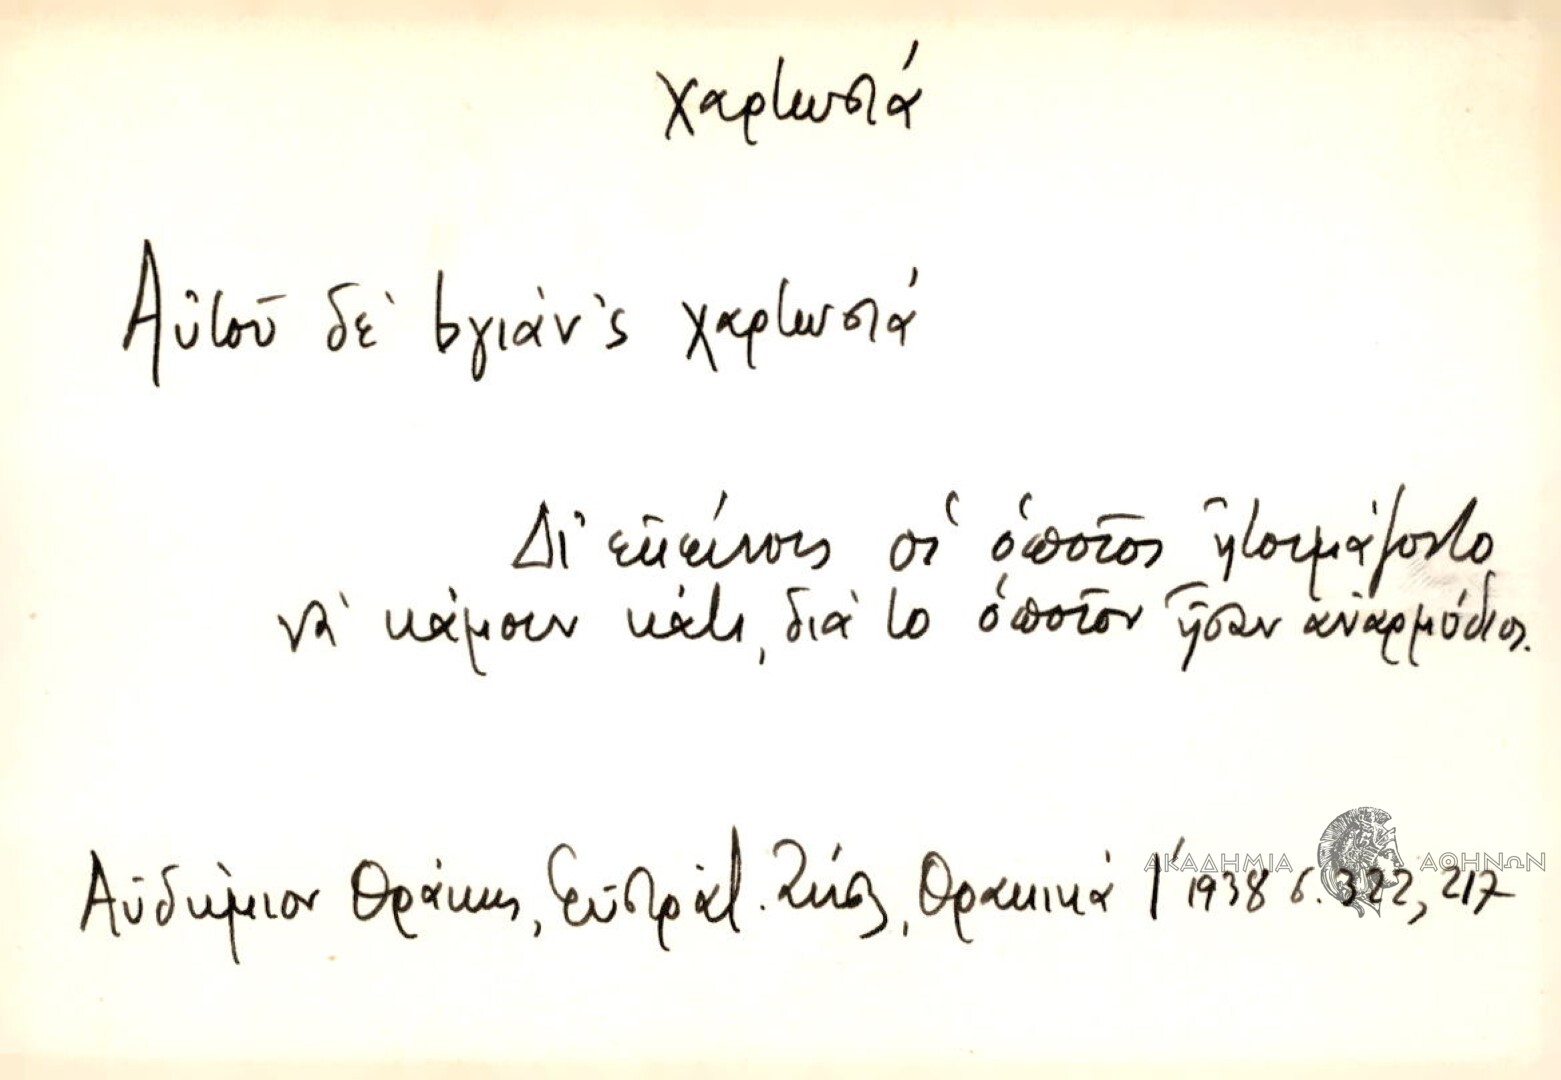 χαρτωσιά
Αὐτοῦ δὲ βγιάν'ς χαρτωσιά
Δι' ἐκείνους οἱ ὁποῖοι ἡτοιμάζοντο
νὰ κάμουν κάτι, διὰ τὸ ὁποῖον ἦσαν ἀναρμόδιοι.
Αὐδήμιον Θράκης, Εὐστράτ. Ζήση, Θρακικά Ι' 1938 σ. 322, 217
ΑΚΑΔΗΜΙΑ ΑΘΗΝΩΝ